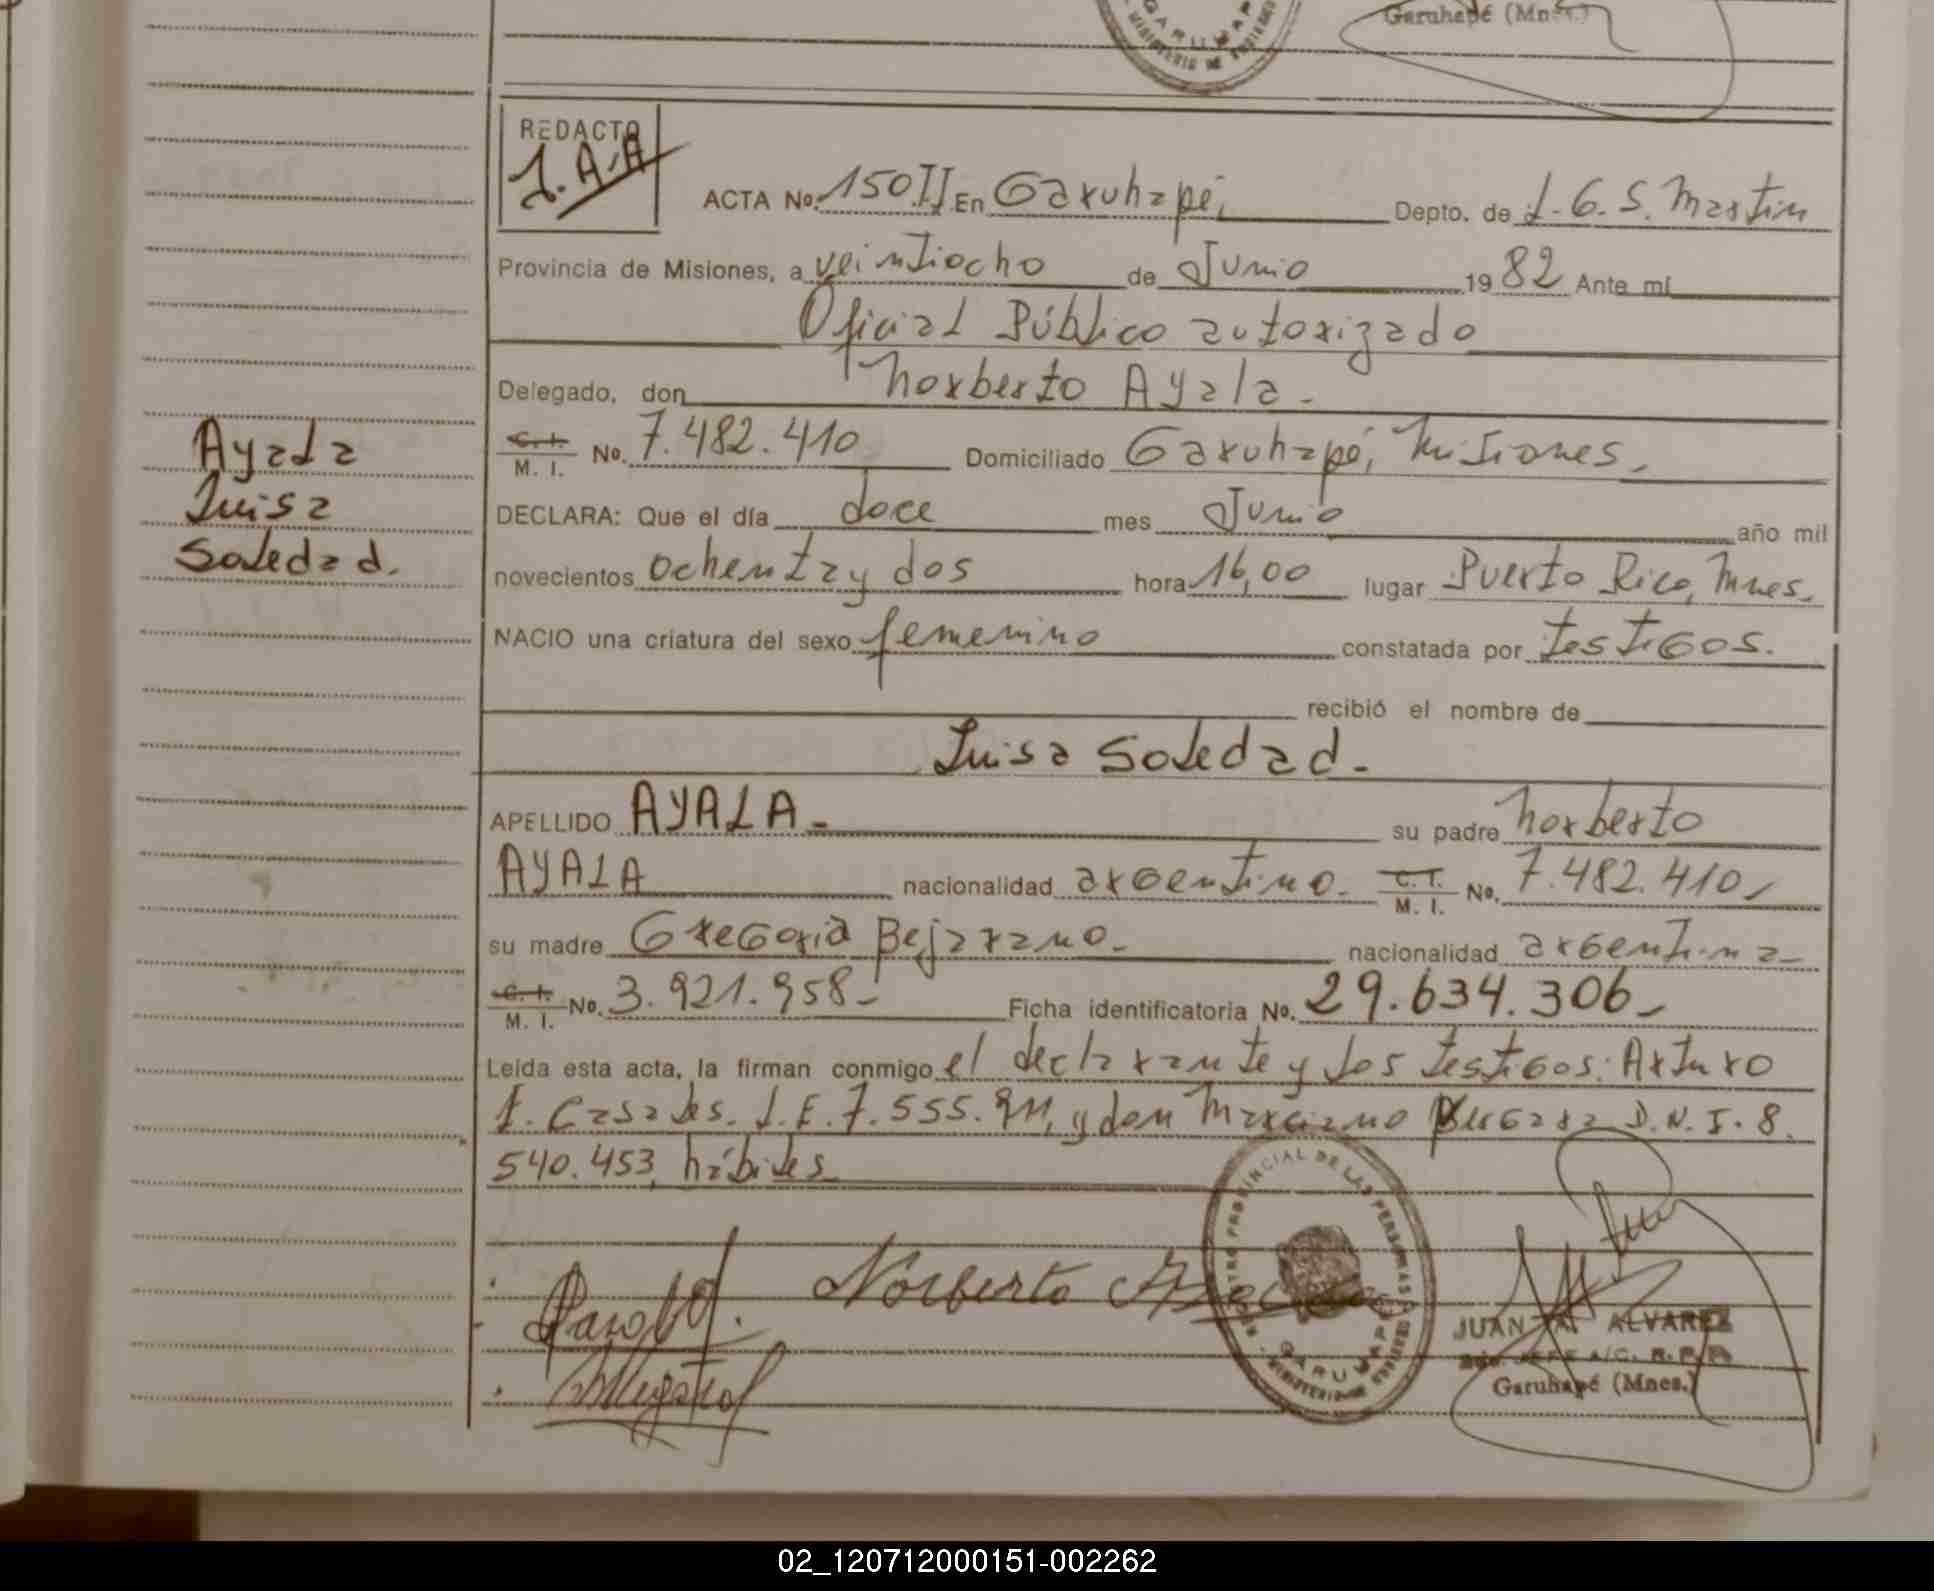 Garuhapé (Mnes.)
REDACTO
J.A.A
ACTA No. 150.II En Garuhapé, Depto. de L.G.S. Martin
Provincia de Misiones, a veintiocho de Junio 1982 Ante mí
Oficial Público autorizado
Delegado, don Norberto Ayala.-
C. I.
M. I. No. 7.482.410 Domiciliado Garuhapé, Misiones.
DECLARA: Que el día doce mes Junio año mil
novecientos ochenta y dos hora 16,00 lugar Puerto Rico, Mnes.
NACIO una criatura del sexo femenino constatada por testigos.
recibió el nombre de
Luisa Soledad.-
APELLIDO AYALA.- su padre Norberto
AYALA nacionalidad argentino.- C. I. M. I. No. 7.482.410,-
su madre Gregoria Bejarano.- nacionalidad argentina-
C. I. M. I. No. 3.921.958- Ficha identificatoria No. 29.634.306,-
Leída esta acta, la firman conmigo el declarante y los testigos: Arturo
Casales. L.E. 7.555.911, y don Marciano D.N.I. 8.
540.453, hábiles.
Ayala
Luisa
Soledad.
Norberto Ayala
PROVINCIAL DE LAS PERSONAS
GARUHAPE
JUAN A. ALVAREZ
JEFE A/C. R.P.P.
Garuhapé (Mnes.)
02_120712000151-002262